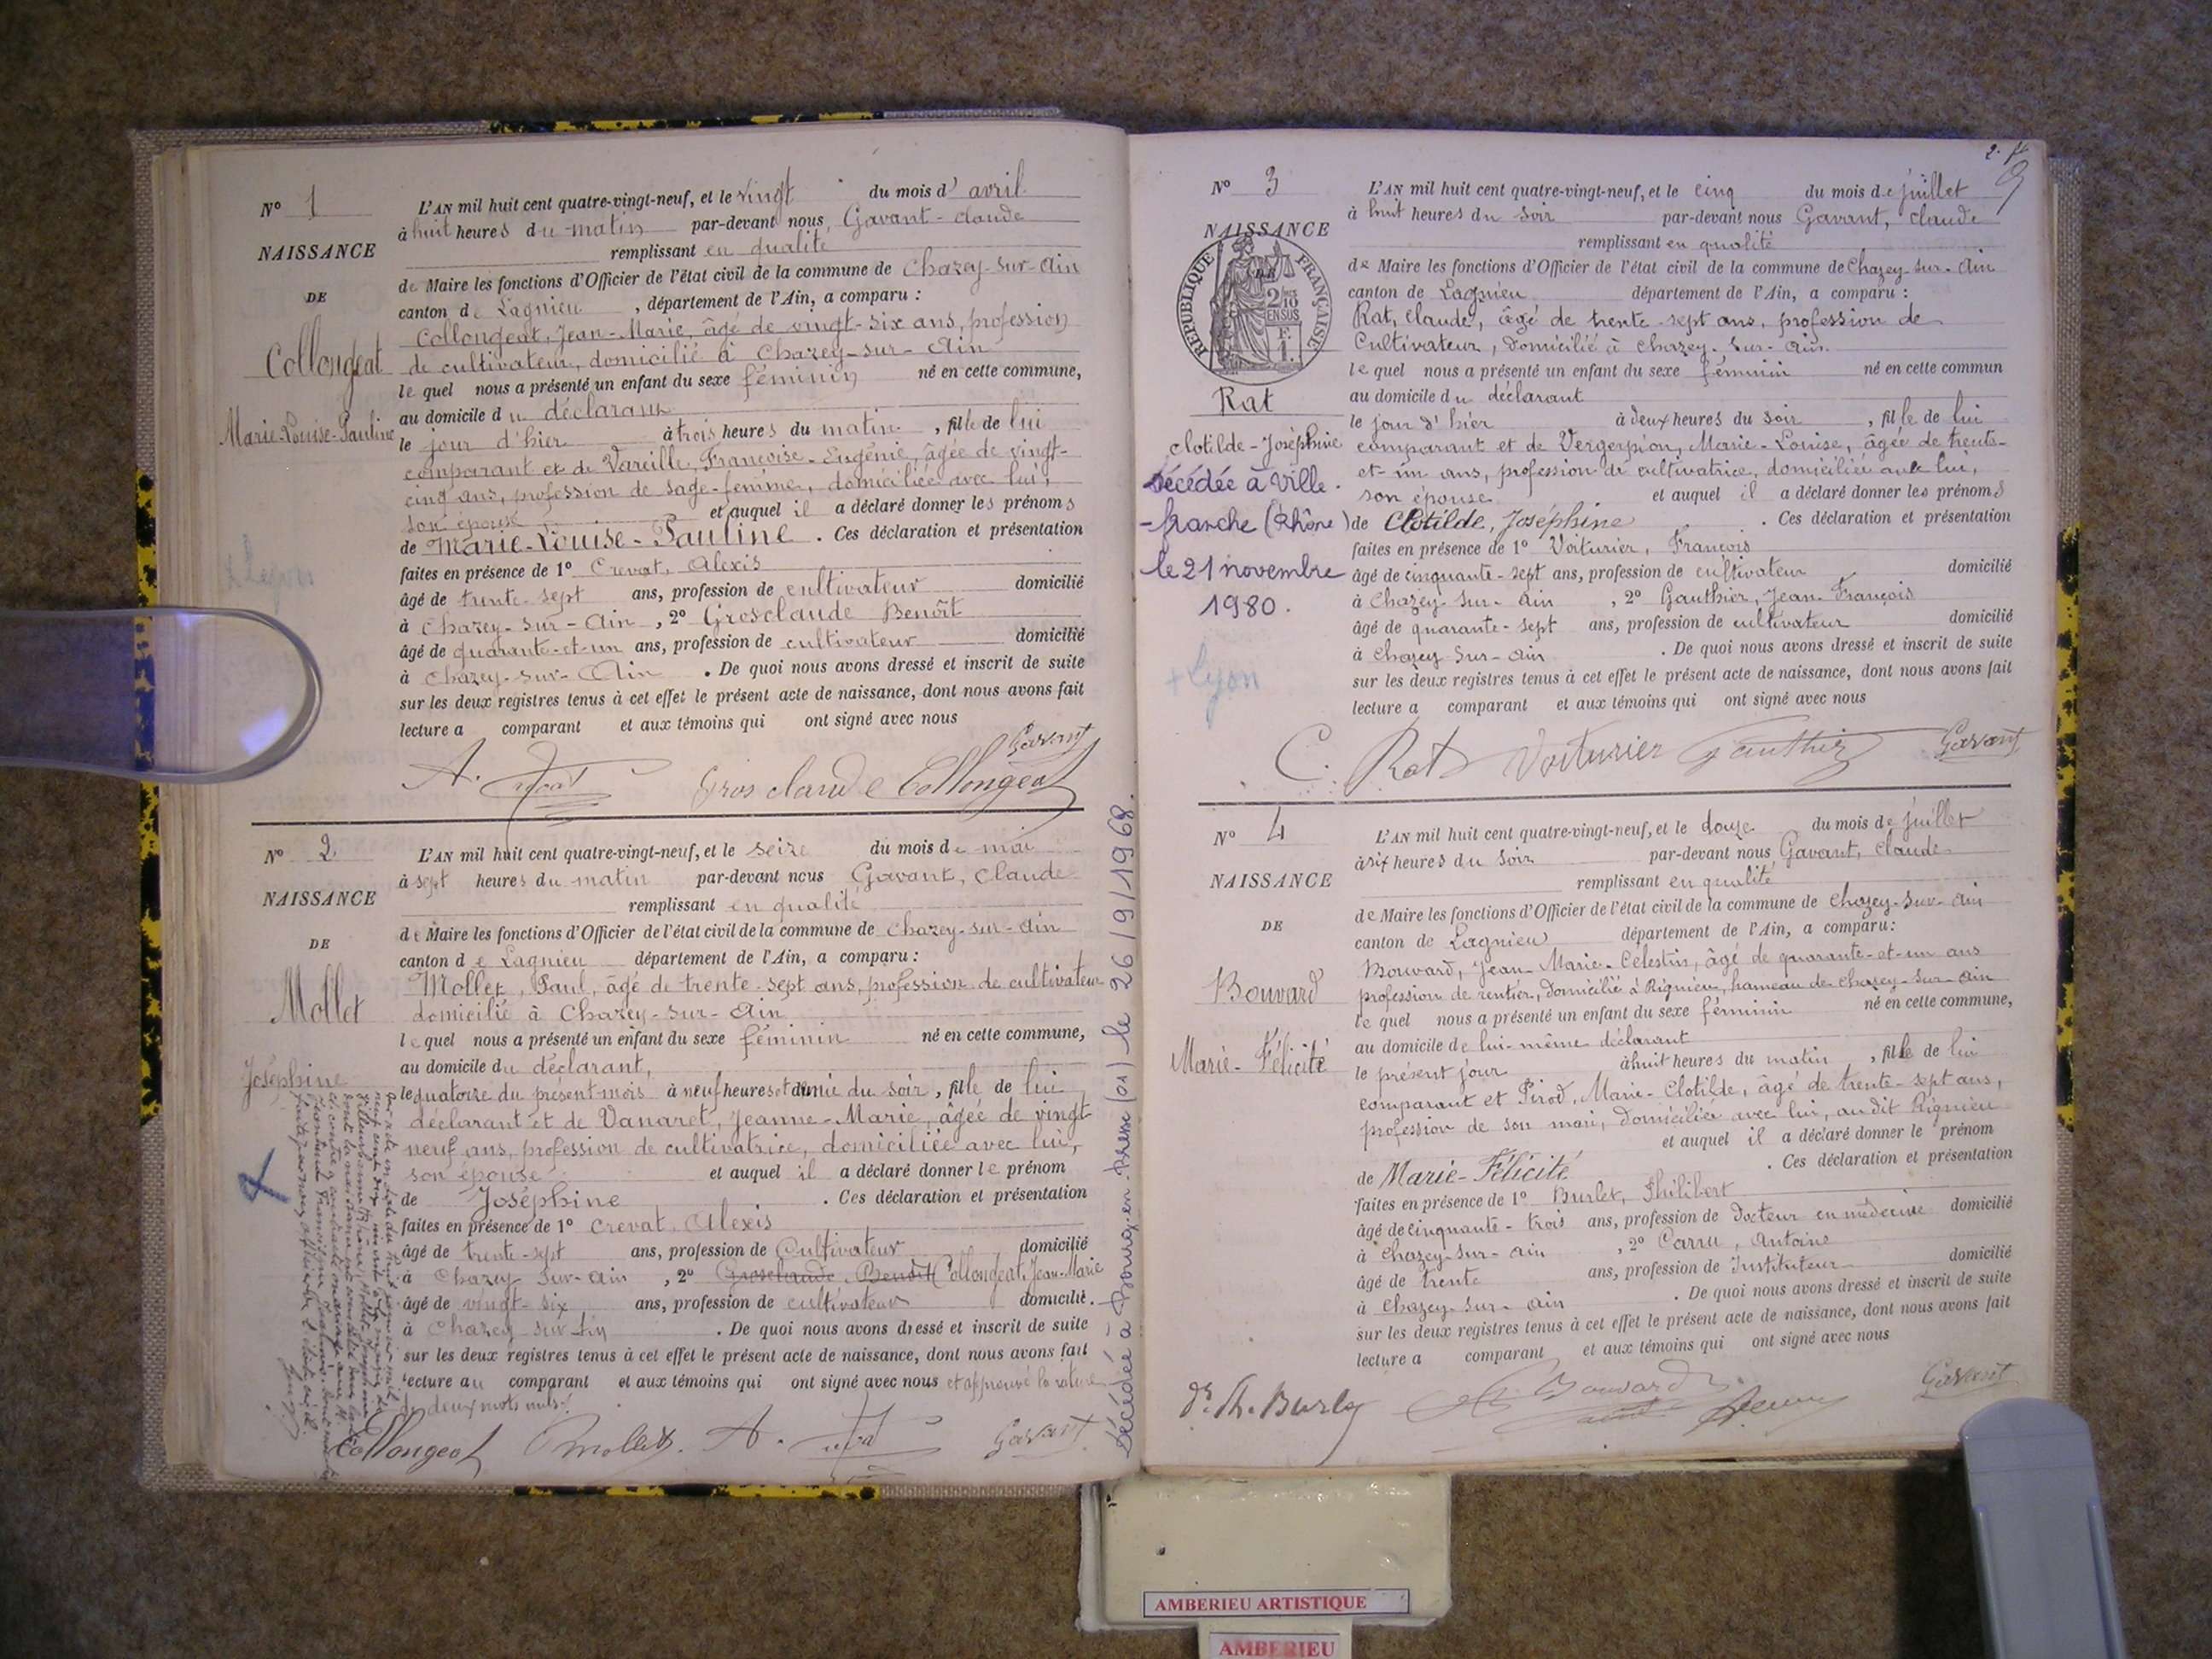 N° 1
NAISSANCE
DE
Collongeat
Marie-Louise-Pauline
L'AN mil huit cent quatre-vingt-neuf, et le vingt du mois d' avril
à huit heures du matin par-devant nous Gavant-Claude
remplissant en qualité
de Maire les fonctions d'Officier de l'état civil de la commune de Chazey-sur-Ain
canton de Lagnieu, département de l'Ain, a comparu :
Collongeat, Jean-Marie, âgé de vingt-six ans, profession
de cultivateur, domicilié à Chazey-sur-Ain
le quel nous a présenté un enfant du sexe féminin né en cette commune,
au domicile du déclarant
le jour d'hier à trois heures du matin, fille de lui
comparant et de Vareille, Françoise-Eugénie, âgée de vingt-
cinq ans, profession de sage-femme, domiciliée avec lui,
son épouse et auquel il a déclaré donner les prénoms
de Marie-Louise-Pauline. Ces déclaration et présentation
faites en présence de 1° Crevat, Alexis
âgé de trente-sept ans, profession de cultivateur domicilié
à Chazey-sur-Ain, 2° Grosclaude Benoît
âgé de quarante-et-un ans, profession de cultivateur domicilié
à Chazey-sur-Ain. De quoi nous avons dressé et inscrit de suite
sur les deux registres tenus à cet effet le présent acte de naissance, dont nous avons fait
lecture a comparant et aux témoins qui ont signé avec nous
Gavant
A. Crevat Grosclaude Collongeat
N° 2
NAISSANCE
DE
Mollet
Joséphine
L'AN mil huit cent quatre-vingt-neuf, et le seize du mois de mai
à sept heures du matin par-devant nous Gavant, Claude
remplissant en qualité
de Maire les fonctions d'Officier de l'état civil de la commune de Chazey-sur-Ain
canton de Lagnieu département de l'Ain, a comparu :
Mollet, Paul, âgé de trente-sept ans, profession de cultivateur
domicilié à Chazey-sur-Ain
lequel nous a présenté un enfant du sexe féminin né en cette commune,
au domicile du déclarant,
le quatorze du présent mois à neuf heures et demie du soir, fille de lui
déclarant et de Vanaret, Jeanne-Marie, âgée de vingt-
neuf ans, profession de cultivatrice, domiciliée avec lui,
son épouse et auquel il a déclaré donner le prénom
de Joséphine. Ces déclaration et présentation
faites en présence de 1° Crevat, Alexis
âgé de trente-sept ans, profession de Cultivateur domicilié
à Chazey sur-ain, 2° Grosclaude Benoît Collongeat, Jean-Marie
âgé de vingt-six ans, profession de cultivateur domicilié.
à Chazey-sur-Ain. De quoi nous avons dressé et inscrit de suite
sur les deux registres tenus à cet effet le présent acte de naissance, dont nous avons fait
lecture au comparant et aux témoins qui ont signé avec nous et approuvé la rature
de deux mots nuls.
Collongeat Mollet A. Crevat Gavant
Décédée à Bourg-en-Bresse (01) le 26/9/1968.
2.
N° 3
NAISSANCE
RÉPUBLIQUE FRANÇAISE
2/10 EN SUS
F. 1.
Rat
Clotilde-Joséphine
Décédée à Ville-
-franche (Rhône)
le 21 novembre
1980.
+ Lyon
L'AN mil huit cent quatre-vingt-neuf, et le cinq du mois de juillet
à huit heures du soir par-devant nous Gavant, Claude
remplissant en qualité
de Maire les fonctions d'Officier de l'état civil de la commune de Chazey-sur-Ain
canton de Lagnieu département de l'Ain, a comparu :
Rat, Claude, âgé de trente-sept ans, profession de
Cultivateur, domicilié à Chazey-sur-Ain
le quel nous a présenté un enfant du sexe féminin né en cette commun
au domicile du déclarant
le jour d'hier à deux heures du soir, fille de lui
comparant et de Vergerpion, Marie-Louise, âgée de trente-
et-un ans, profession de cultivatrice, domiciliée avec lui,
son épouse et auquel il a déclaré donner les prénoms
de Clotilde, Joséphine. Ces déclaration et présentation
faites en présence de 1° Voiturier, François
âgé de cinquante-sept ans, profession de cultivateur domicilié
à Chazey-sur-Ain, 2° Gauthier, Jean-François
âgé de quarante-sept ans, profession de cultivateur domicilié
à Chazey-sur-Ain. De quoi nous avons dressé et inscrit de suite
sur les deux registres tenus à cet effet le présent acte de naissance, dont nous avons fait
lecture a comparant et aux témoins qui ont signé avec nous
C. Rat Voiturier Gauthier Gavant
N° 4
NAISSANCE
DE
Bouvard
Marie-Félicité
L'AN mil huit cent quatre-vingt-neuf, et le douze du mois de juillet
à six heures du soir par-devant nous Gavant, Claude
remplissant en qualité
de Maire les fonctions d'Officier de l'état civil de la commune de Chazey-sur-Ain
canton de Lagnieu département de l'Ain, a comparu :
Bouvard, Jean-Marie-Célestin, âgé de quarante-et-un ans
profession de rentier, domicilié à Rignieu, hameau de Chazey-sur-Ain
le quel nous a présenté un enfant du sexe féminin né en cette commune,
au domicile de lui-même déclarant
le présent jour à huit heures du matin, fille de lui
comparant et Pirod, Marie-Clotilde, âgé de trente-sept ans,
profession de son mari, domiciliée avec lui, au dit Rignieu
et auquel il a déclaré donner le prénom
de Marie-Félicité. Ces déclaration et présentation
faites en présence de 1° Burlet, Philibert
âgé de cinquante-trois ans, profession de Docteur en médecine domicilié
à Chazey-sur-Ain, 2° Carru, Antoine
âgé de trente ans, profession de Instituteur domicilié
à Chazey-sur-Ain. De quoi nous avons dressé et inscrit de suite
sur les deux registres tenus à cet effet le présent acte de naissance, dont nous avons fait
lecture a comparant et aux témoins qui ont signé avec nous
Bouvard Gavant
AMBERIEU ARTISTIQUE
AMBERIEU